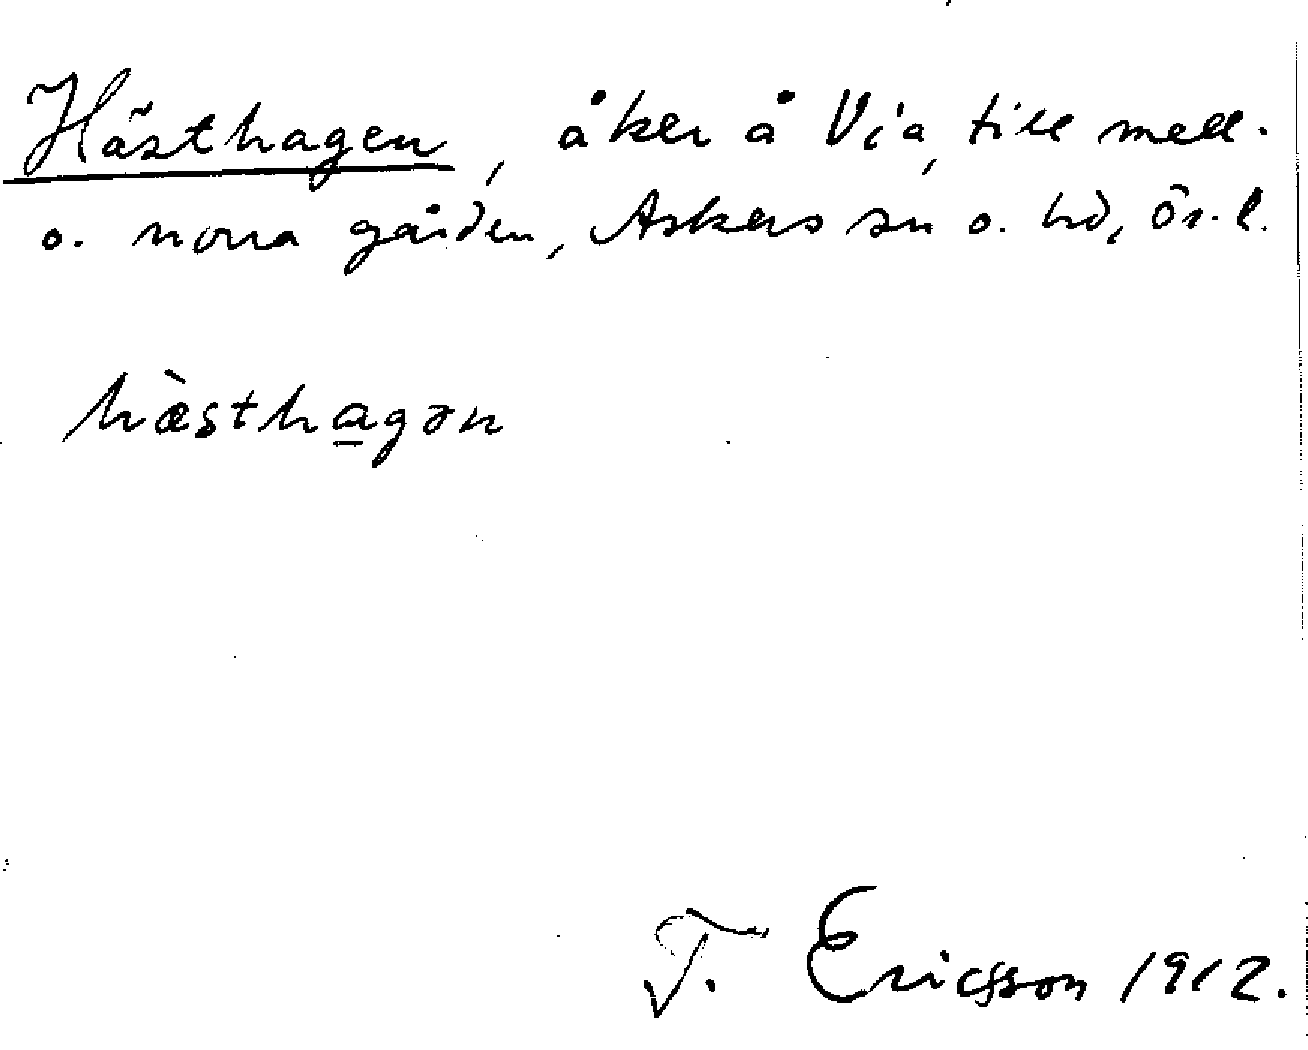 Hästhagen, åker å Via, till mell.
o. norra gården, Askers sn o. hd, ör. l.
hæ̀stha̲gən
T. Ericsson 1912.